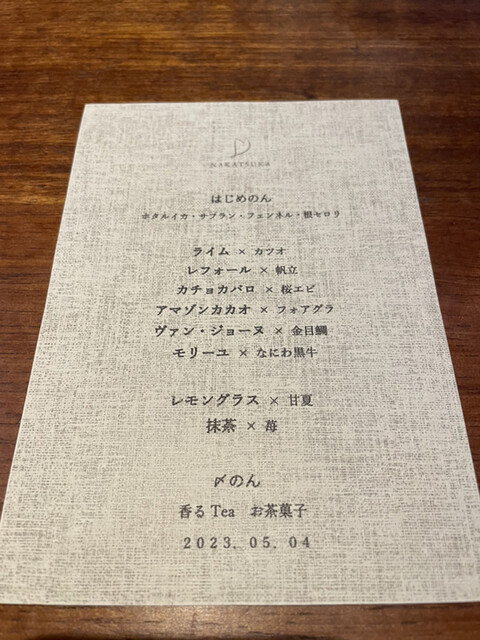 NAKATSUKA
はじめのん
ホタルイカ・サフラン・フェンネル・根セロリ
ライム × カツオ
レフォール × 帆立
カチョカバロ × 桜エビ
アマゾンカカオ × フォアグラ
ヴァン・ジョーヌ × 金目鯛
モリーユ × なにわ黒牛
レモングラス × 甘夏
抹茶 × 苺
〆のん
香るTea　お茶菓子
2023. 05. 04